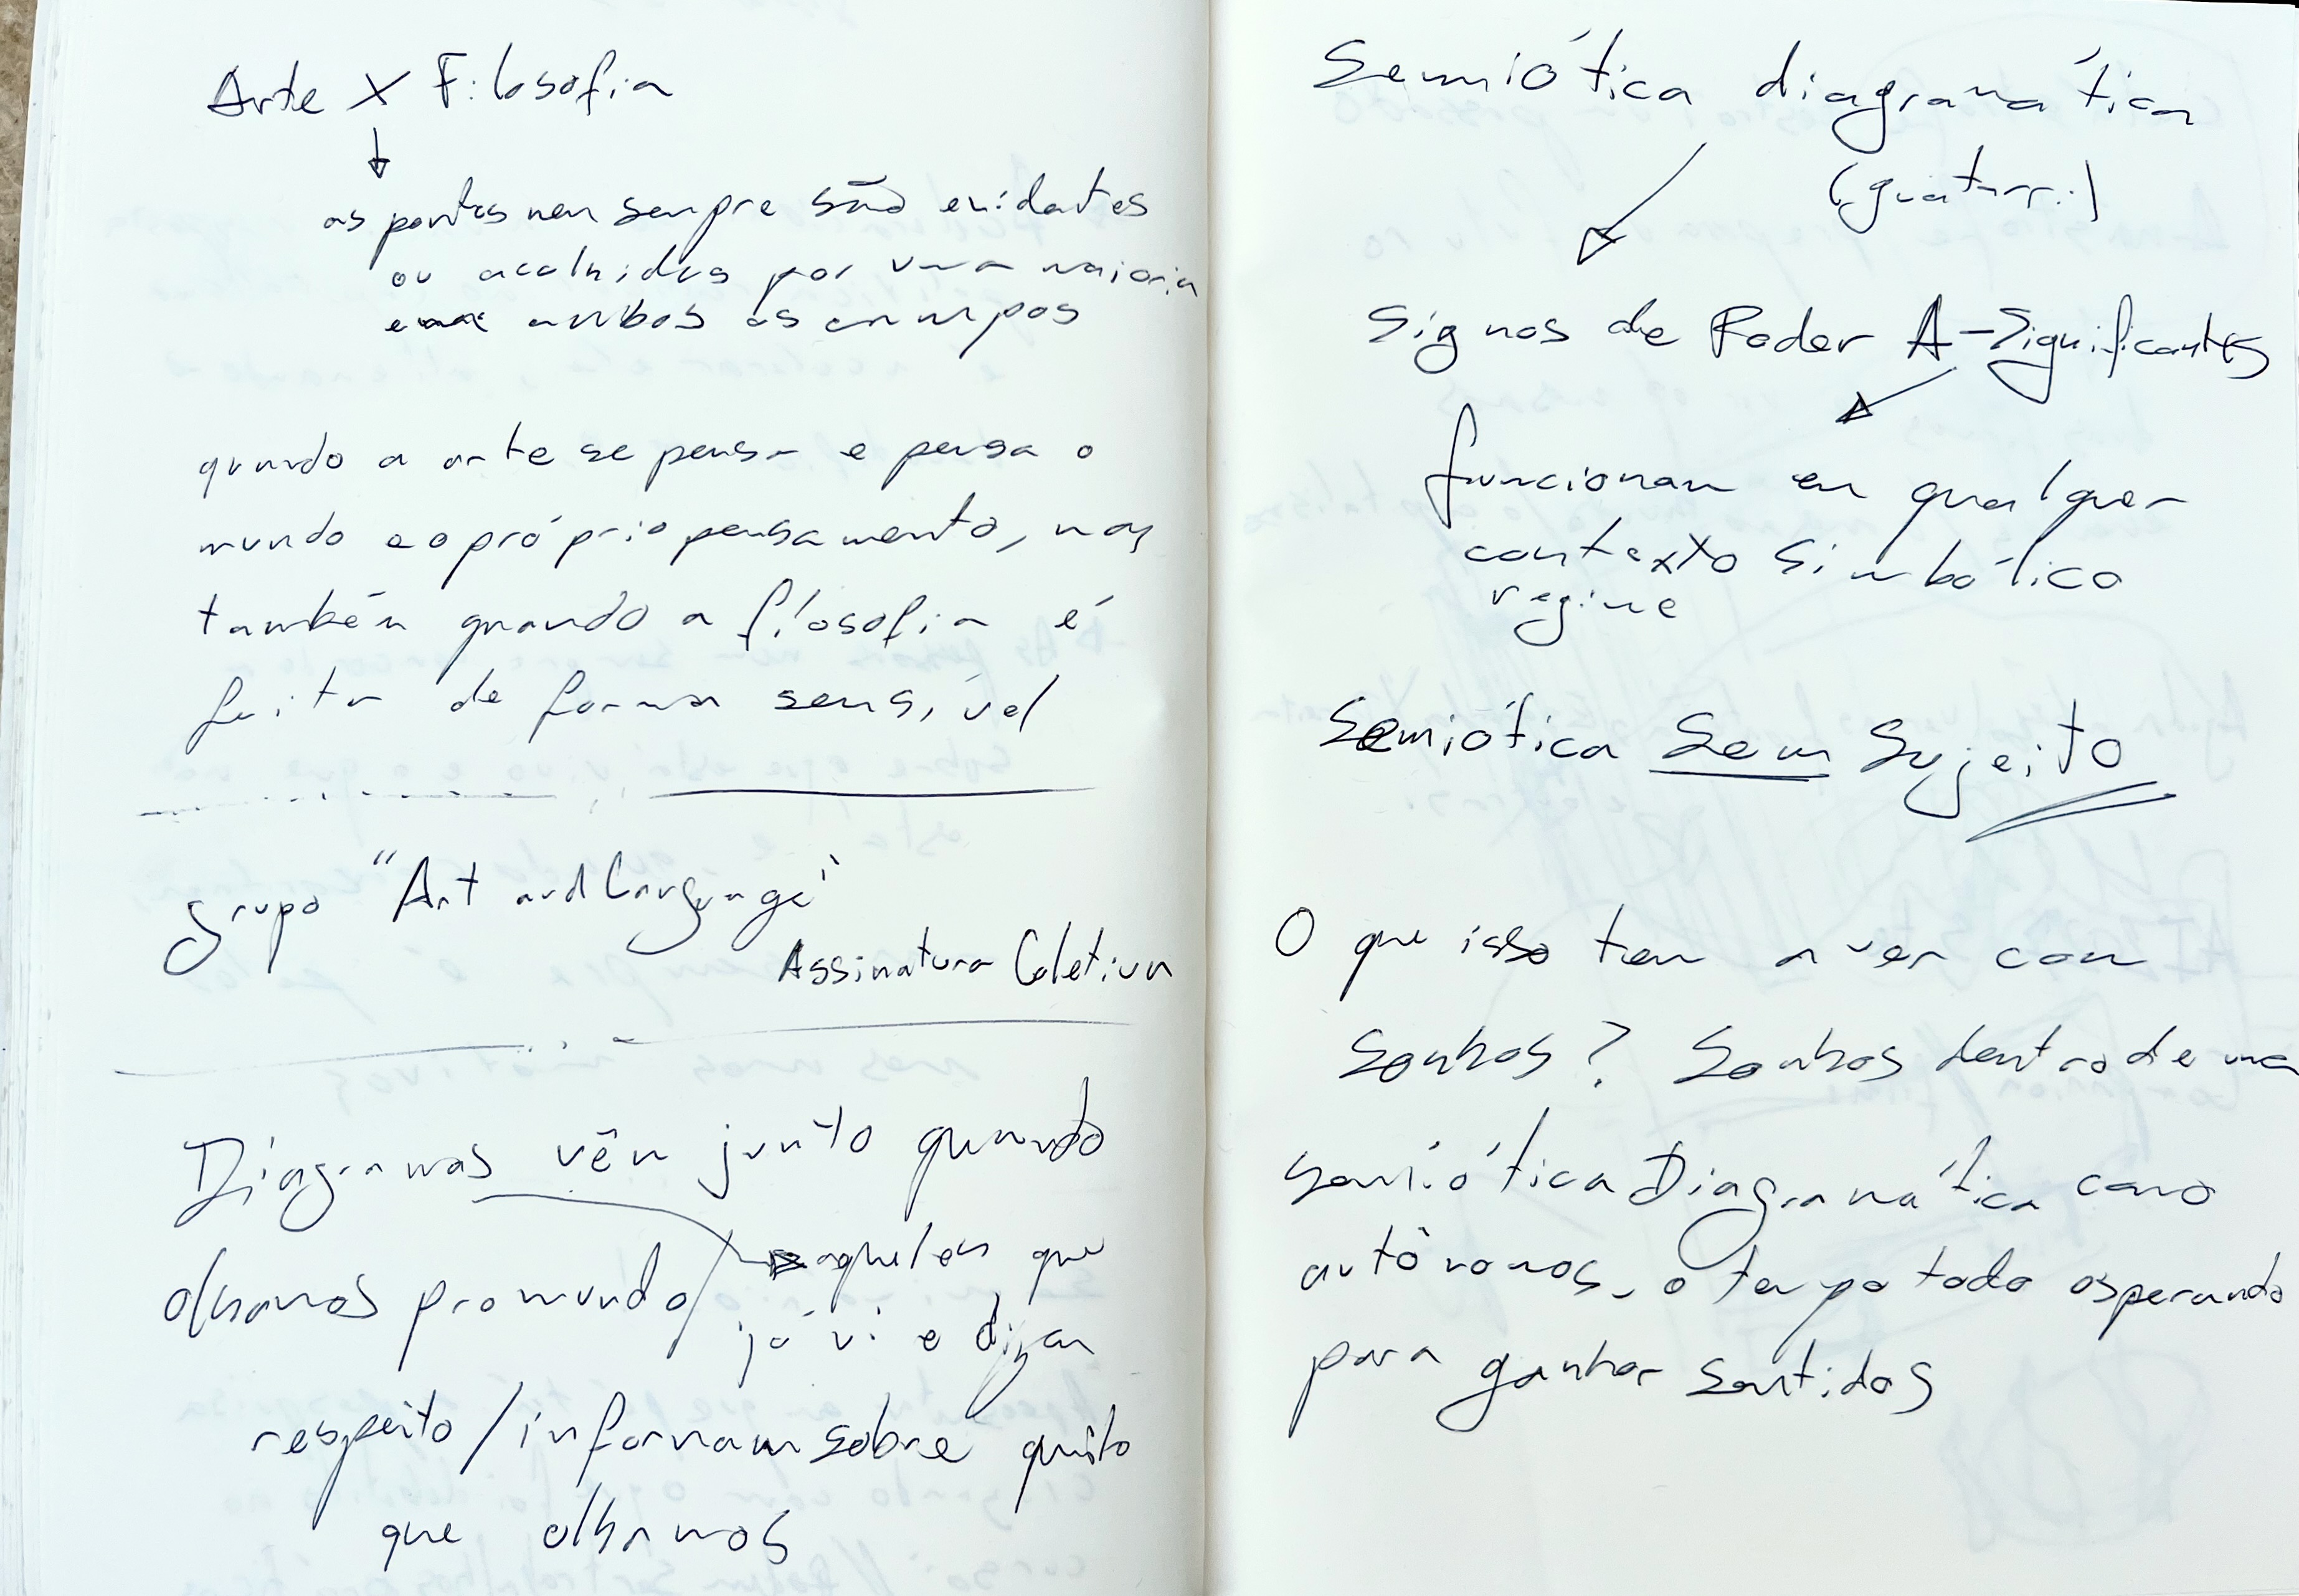 Arte X Filosofia
↓
as pontes nem sempre são evidentes
ou acolhidas por uma maioria
em ambos os campos
quando a arte se pensa e pensa o
mundo e o próprio pensamento, mas
também quando a filosofia é
feita de forma sensível
grupo "Art and Language"
Assinatura Coletiva
Diagramas vêm junto quando
olhamos pro mundo/ → aqueles que
já vi e dizem
respeito / informam sobre
que olhamos
Semiótica diagramática
(guattari)
Signos de Poder A-Significantes
funcionam em qualquer
contexto simbólico
regime
Semiótica Sem Sujeito
O que isso tem a ver com
Sonhos? Sonhos dentro de uma
semiótica Diagramática como
autônomos, o tempo todo esperando
para ganhar sentidos